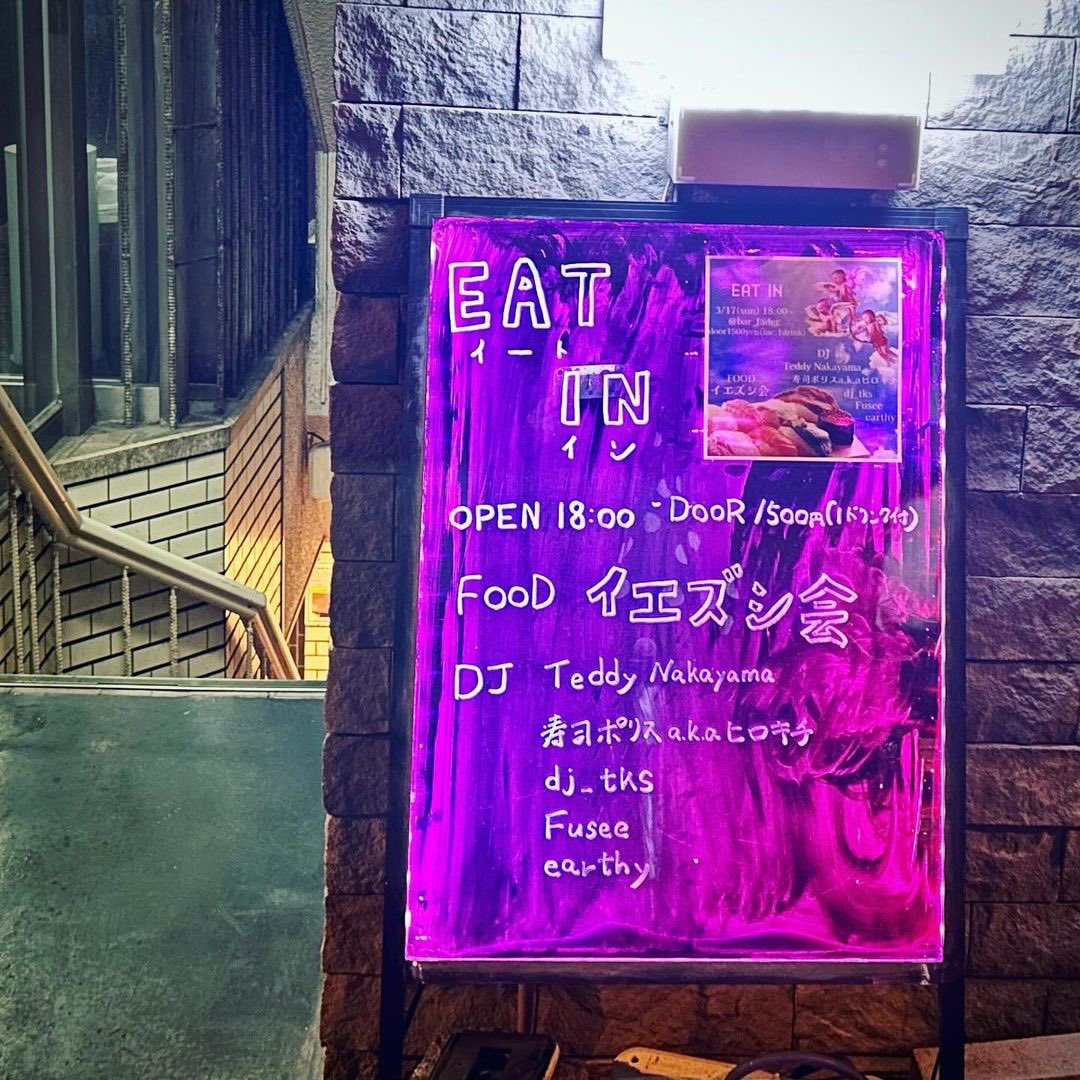 EAT
イート
IN
イン
OPEN 18:00 - DOOR 1500円(1ドリンク付)
FOOD イエズシ会
DJ Teddy Nakayama
寿司ポリス a.k.a ヒロキチ
dj_tks
Fusee
earthy
EAT IN
3/17(sun) 18:00~
@bar_fader
door1500yen(inc.1drink)
DJ
Teddy Nakayama
寿司ポリスa.k.aヒロキチ
dj_tks
Fusee
earthy
FOOD
イエズシ会